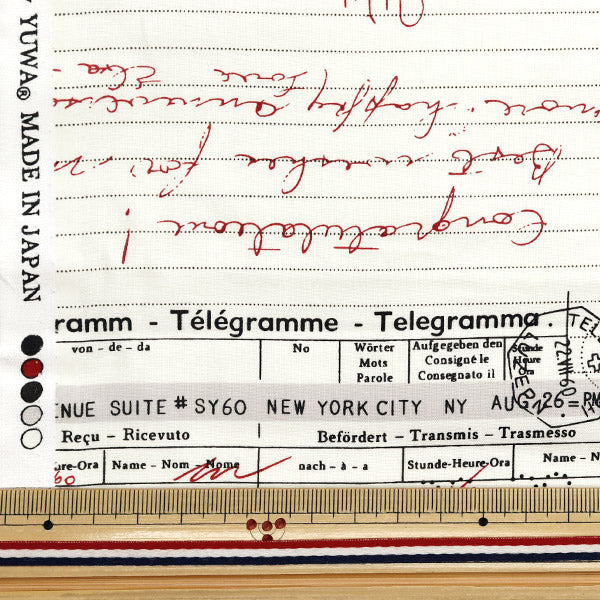 YUWA® MADE IN JAPAN
Love Elsa
more happy
Best wishes for
Congratulations!
ramm - Télégramme - Telegramma.
von - de - da
No
Wörter
Mots
Parole
Aufgegeben den
Consigné le
Consegnato il
Stunde
Heure
Ora
TEL
LUZERN
22.VII.60.
ENUE SUITE # SY60 NEW YORK CITY NY AUG 26 - PM
Reçu - Ricevuto
Befördert - Transmis - Trasmesso
ure-Ora
Name - Nom - Nome
nach - à - a
Stunde-Heure-Ora
Name - N